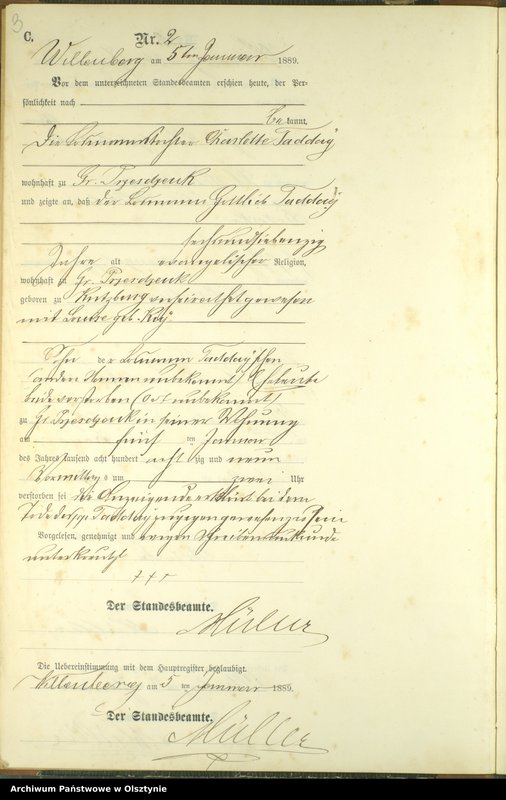 3
C.
Nr. 2
Willenberg am 5ten Januar 1889.
Vor dem unterzeichneten Standesbeamten erschien heute, der Per-
sönlichkeit nach
bekannt,
die Losmannstochter Charlotte Tadday
wohnhaft zu Gr. Przesdzenk
und zeigte an, daß der Losmann Gottlieb Tadday
sechsundsiebenzig
Jahre alt evangelischer Religion,
wohnhaft zu Gr. Przesdzenk
geboren zu Kutzburg verheirathet gewesen
mit Louise geb.
Sohn der Losmann Tadday'schen
(andere Namen unbekannt) Eheleute
beide verstorben (Ort unbekannt)
zu Gr. Przesdzenk in seiner Wohnung
am fünf ten Januar
des Jahres tausend acht hundert acht zig und neun
Vormittags um zwei Uhr
verstorben sei die Anzeigende erklärt bei dem
Tode des pp Tadday zugegen gewesen zu sein
Vorgelesen, genehmigt und wegen Schreibensunkunde
unterkreuzt
+++
Der Standesbeamte.
Müller
Die Uebereinstimmung mit dem Hauptregister beglaubigt.
Willenberg am 5 ten Januar 1889.
Der Standesbeamte.
Müller
Archiwum Państwowe w Olsztynie